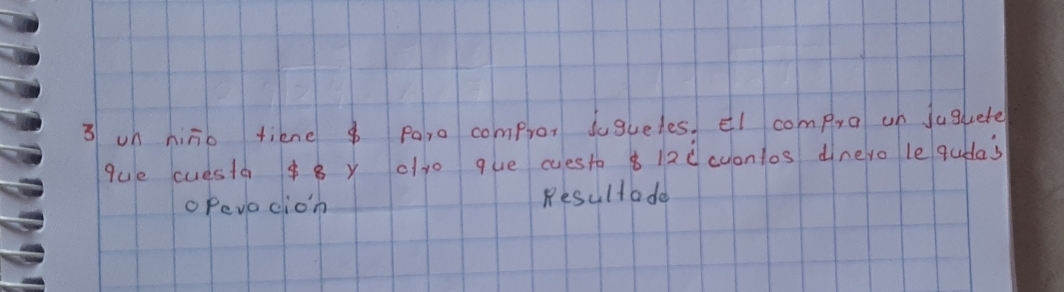 3 un niño tiene $ para comprar juguetes. El compra un juguete
que cuesta $ 8 y otro que cuesto $ 12 ¿ cuantos dinero le qudas
Operación Resultado